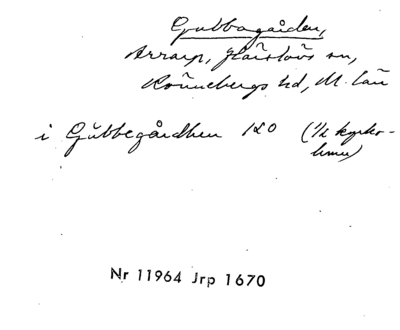 Gubbagården,
Arrarp, Härslövs sn,
Rönnebergs hd, M. län
i Gubbegårdhen 1 & 0 (1/2 kyrko-
hme)
Nr 11964 Jrp 1670